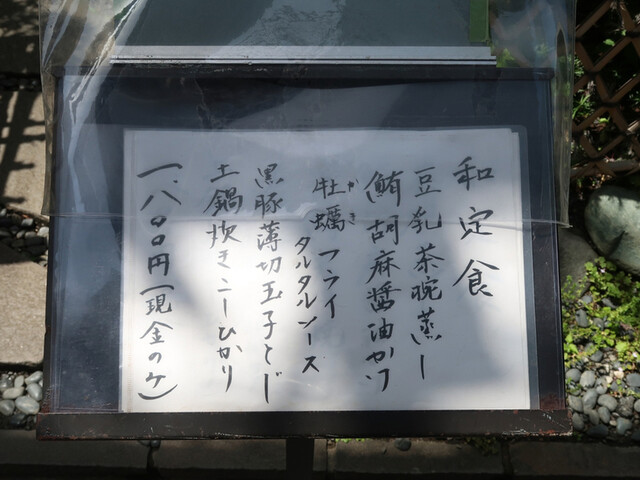 和定食
豆乳茶碗蒸し
鮪胡麻醤油かけ
牡蠣フライ
がき
タルタルソース
黒豚薄切玉子とじ
土鍋炊きこしひかり
一、八〇〇円(現金のみ)